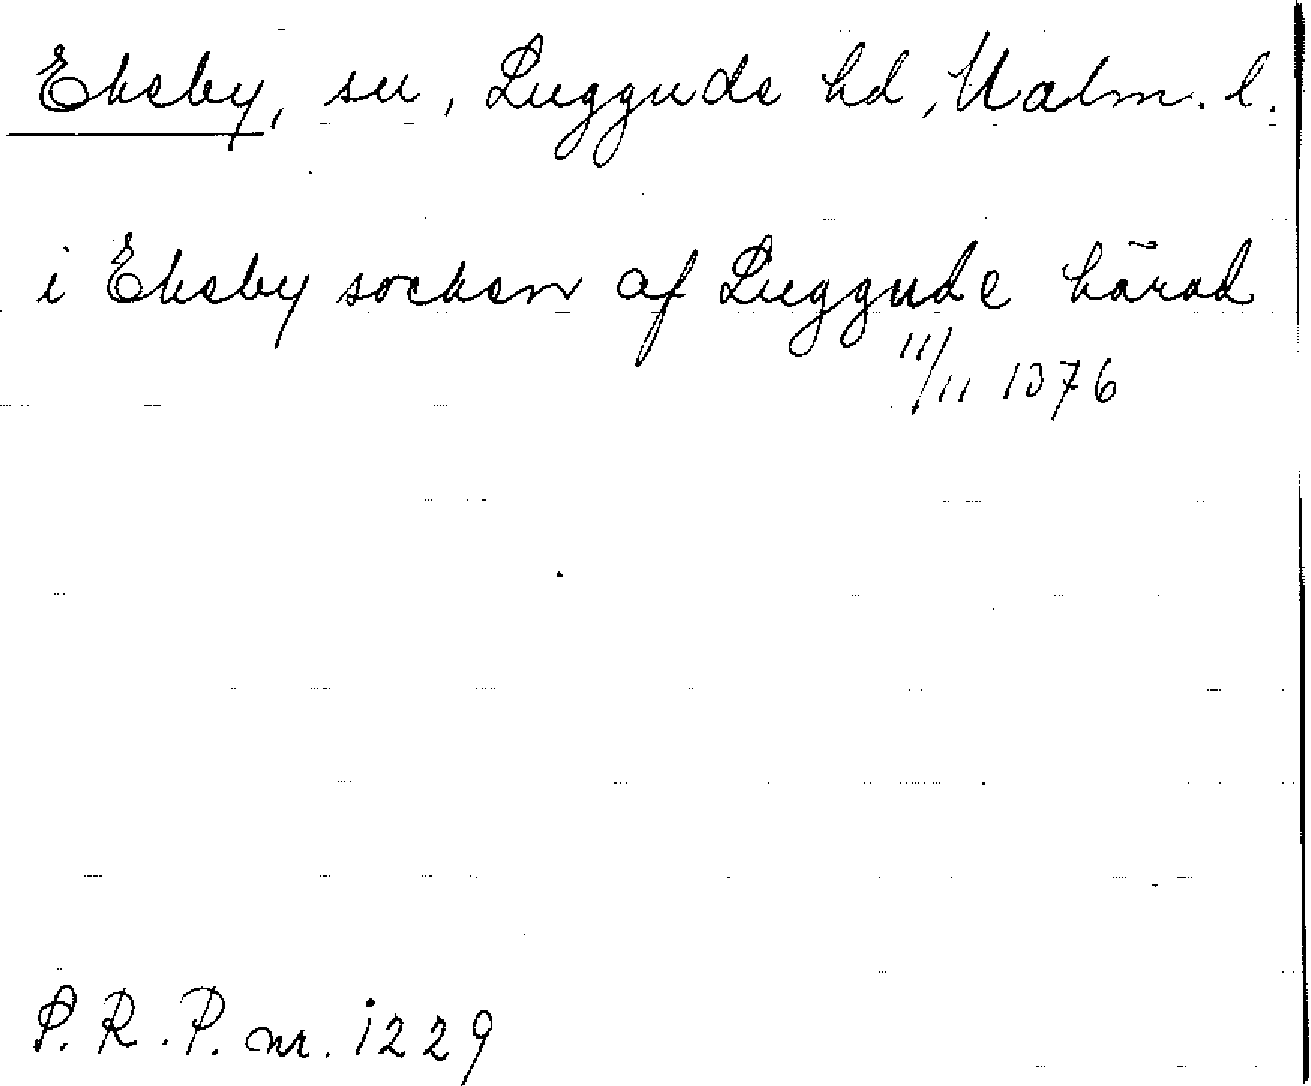 Eksby, sn, Luggude hd, Malm. l.
i Eksby socken af Luggude härad
11/11 1376
S. R. P. nr. 1229